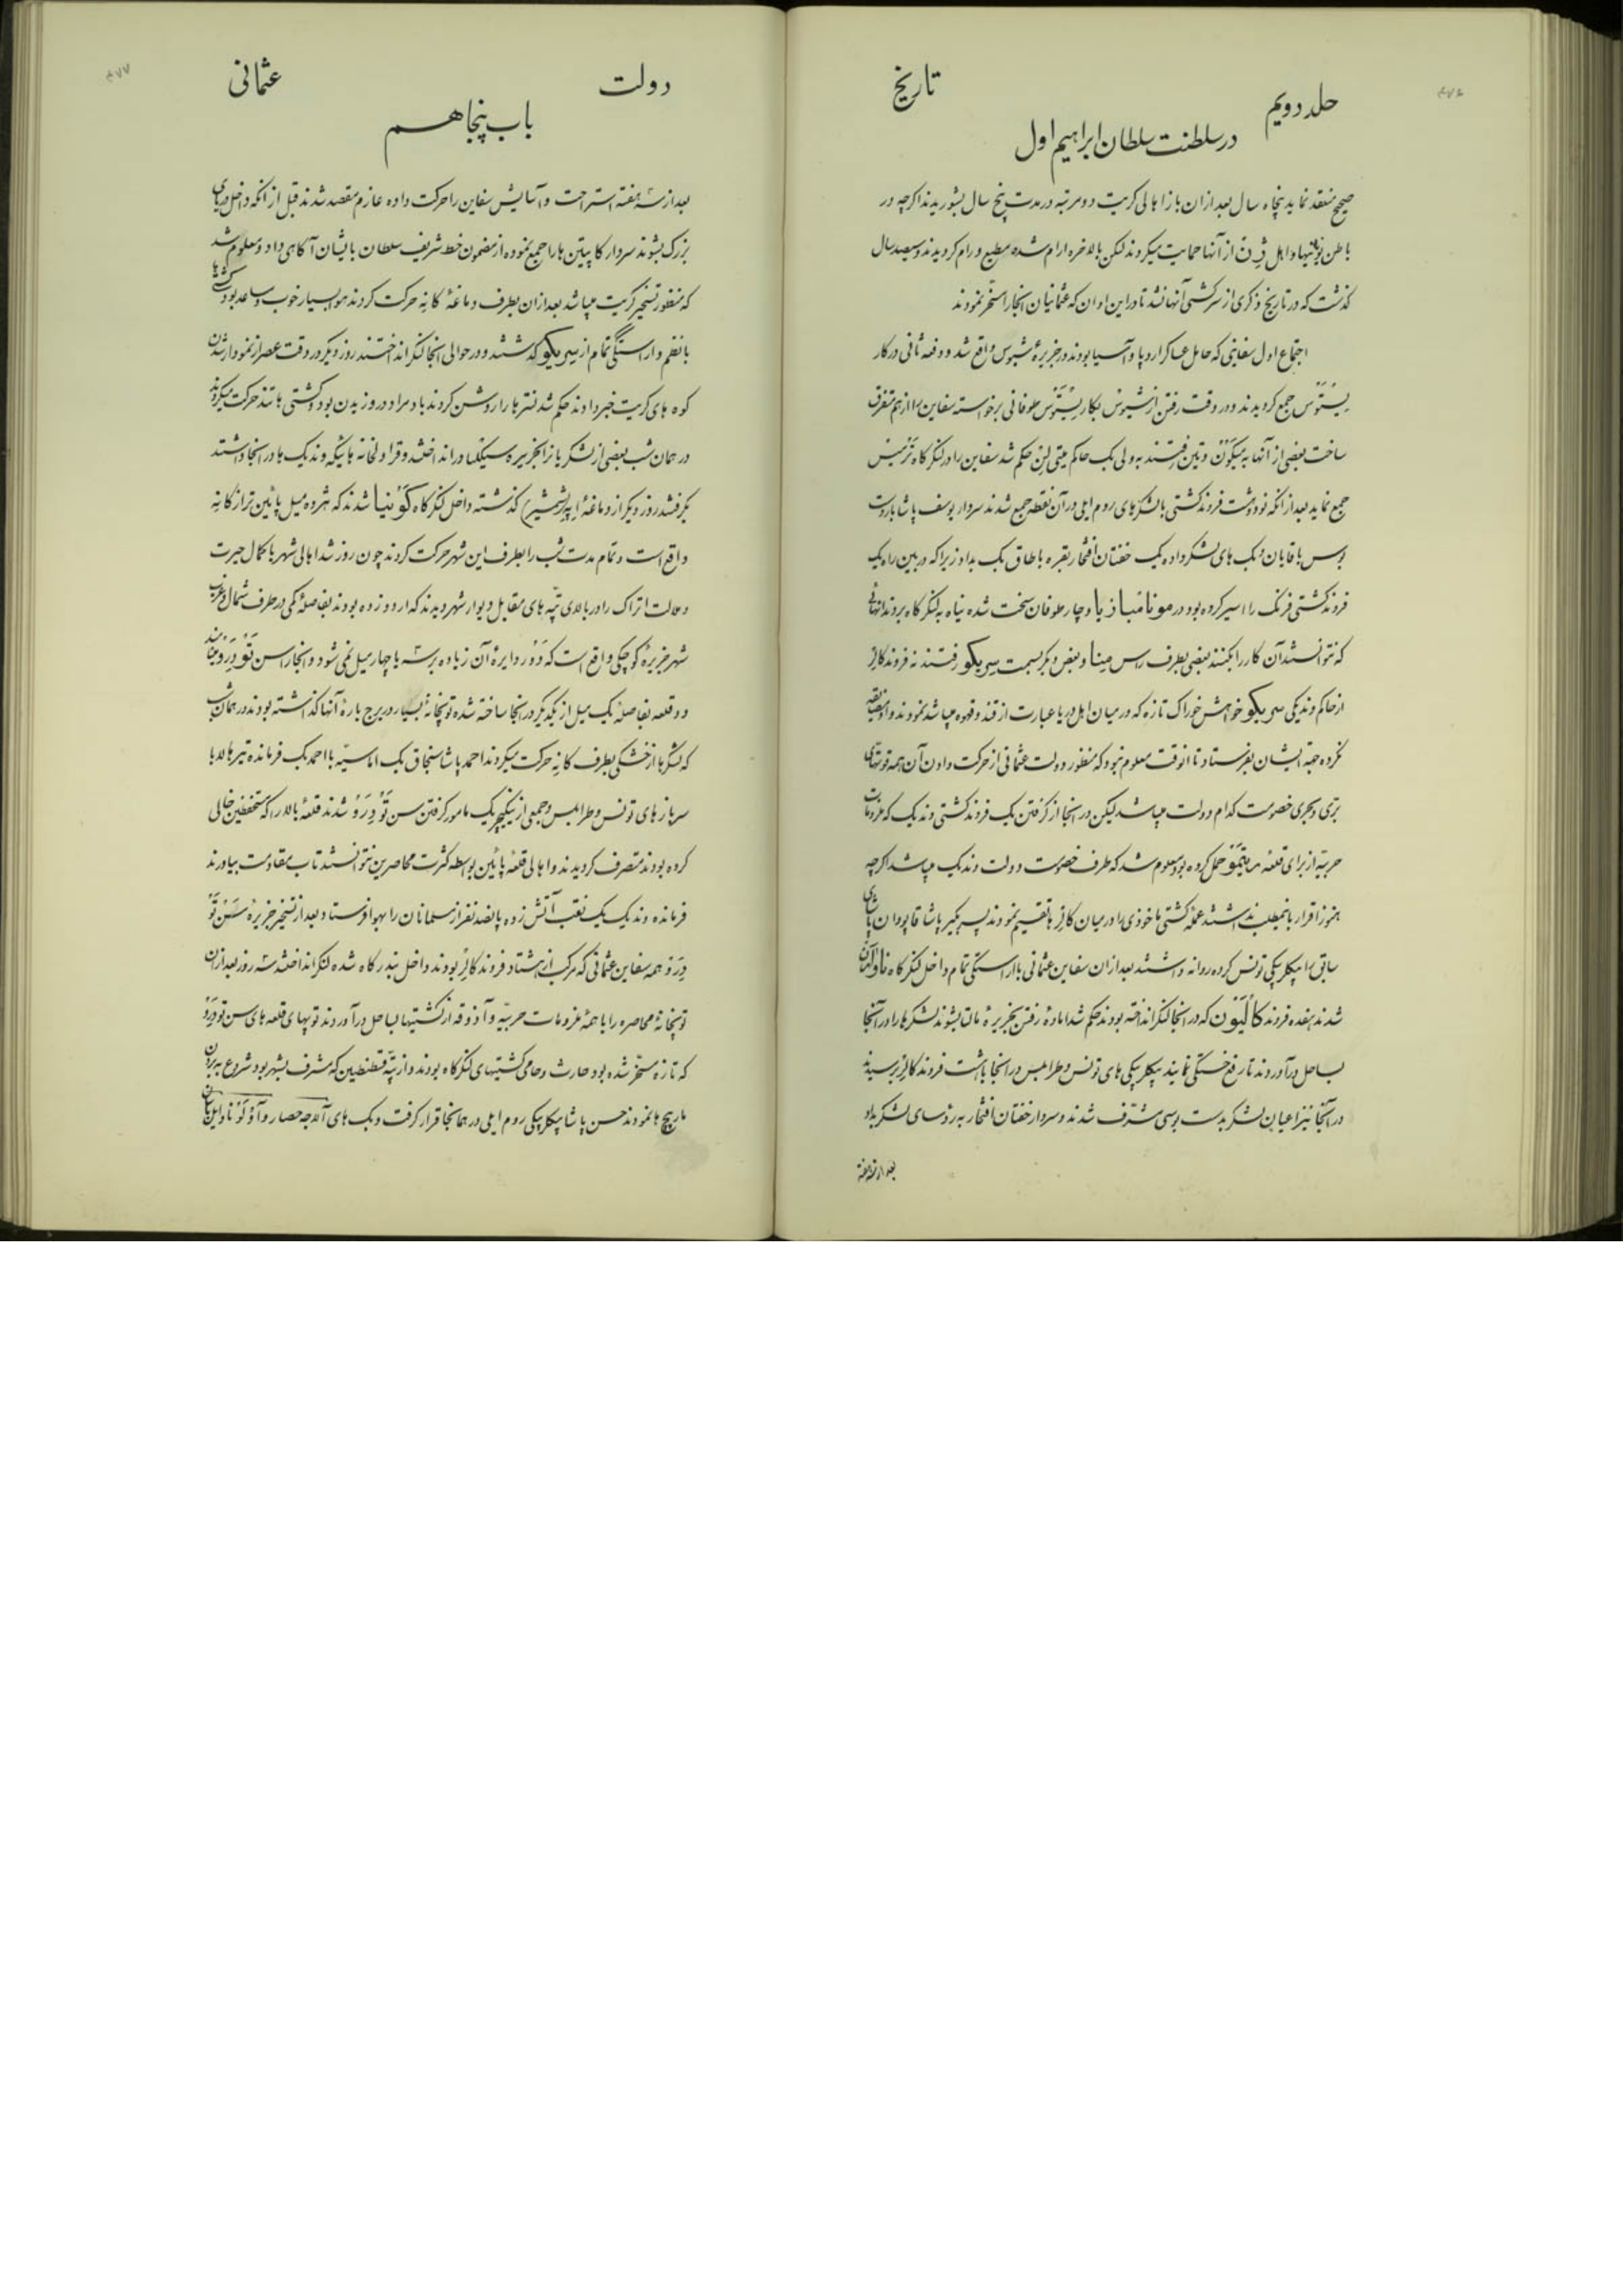 تاریخ
جلد دویم
در سلطنت سلطان ابراهیم اول
صحیح منعقد نماید پنجاه سال بعد از ان باز اهالی کریت دو مرتبه در مدت پنج سال بشوریدند اکرچه در
باطن یونانیها و اهل از آنها حمایت میکردند لیکن بالاخره ارام شده مطیع و رام کردیدند و سیصد سال
کذشت که در تاریخ ذکری از سرکشی آنها نشد تا در این اوان که عثمانیان انجا را مسخر نمودند
اجتماع اول سفاینی که حامل عساکر اروپا و آسیا بودند در جزیرهٔ شیوس واقع شد و دفعه ثانی در کار
یستوس جمع کردیدند و در وقت رفتن از شیوس بکاریستوس طوفانی برخواسته سفاین را از هم متفرق
ساخت بعضی از آنها به میکون و تین رفتند به ولی بک حاکم میتی لن حکم شد سفاین را در لنکرکاه ترمیس
جمع نماید بعد از انکه نود و هشت فروند کشتی با لشکرهای روم ایلی در آن نقطه جمع شدند سردار یوسف پاشا بار دست
بوس باقایان و بک های لشکر داده یک خفتان افتخار بقره باطاق بک بداد زیرا که در بین راه یک
فروند کشتی فرنک را اسیر کرده بود در مونامبازیا دچار طوفان سخت شده پناه به لنکرکاه بردند انهائی
که نتوانستند آن کار را بکنند بعضی بطرف راس مینا و بعض دیکر بسمت سریکو رفتند نه فروند کالر
از حاکم وندیکی سریکو خواهش خوراک تازه که در میان اهل دریا عبارت از قند و قهوه میباشد نمودند و او مضایقه
نکرده جهة ایشان بفرستاد تا انوقت معلوم نبود که منظور دولت عثمانی از حرکت دادن آن همه قوتهای
بری و بحری خصومت کدام دولت میباشد لیکن در انجا از کرفتن یک فروند کشتی وندیک که ملزومات
حربیه از برای قلعه حمل کرده بود معلوم شد که طرف خصومت دولت وندیک میباشد اکرچه
هنوز اقرار باینمطلب نداشتند عمله کشتی ماخوذی را در میان کالرها تقسیم نمودند پسر بکیر پاشا قاپودان پاشای
سابق را بیکلر بیکی تونس کرده روانه داشتند بعد از ان سفاین عثمانی با اراستکی تمام داخل لنکرکاه ناوارین
شدند هفده فروند کالیون که در انجا لنکر انداخته بودند حکم شد امادهٔ رفتن بجزیرهٔ مالت بشوند لشکرها را در آنجا
بساحل درآوردند تا رفع خستکی نمایند بیکلر بیکی های تونس و طرابلس در انجا با هشت فروند کالر برسیدند
در آنجا نیز اعیان لشکر بدست بوسی مشرف شدند و سردار خفتان افتخار به رؤسای لشکر بداد
بعد از سه هفته
دولت
عثمانی
باب پنجاهم
بعد از سه هفته استراحت و آسایش سفاین را حرکت داده عازم مقصد شدند قبل از انکه داخل دریای
بزرک بشوند سردار کاپیتن ها را جمع نموده از مضمون خط شریف سلطان بایشان آکاهی داد و معلوم شد
که منظور تسخیر کریت میباشد بعد از ان بطرف دماغهٔ کانه حرکت کردند هوا بسیار خوب و مساعد بود کشتیها
با نظم و اراستکی تمام از سریکو کذشتند و در حوالی انجا لنکر انداختند روز دیکر در وقت عصر از نمودار شدن
کوه های کریت خبر دادند حکم شد فنرها را روشن کردند باد مراد در وزیدن بود و کشتی ها تند حرکت میکردند
در همان شب بعضی از لشکریانرا بجزیره انداختند و قراولخانه هائیکه وندیک ها در انجا داشتند
بکرفتند روز دیکر از دماغهٔ کذشته داخل لنکرکاه کونیا شدند که هژده میل پائین تر از کانه
واقع است و تمام مدت شب را بطرف این شهر حرکت کردند چون روز شد اهالی شهر با کمال حیرت
اتراک را در بالای تپه های مقابل دیوار شهر دیدند که اردو زده بودند بفاصلهٔ کمی در طرف شمال و غرب
شهر جزیرهٔ کوچکی واقع است که دور دایرهٔ آن زیاده بر سه یا چهار میل نمی شود و انجا را سن تودرو مینامند
دو قلعه بفاصلهٔ یک میل از یکدیکر در انجا ساخته شده توپخانهٔ بسیار در برج بارهٔ آنها کذاشته بودند در همان شب
که لشکرها از خشکی بطرف کانه حرکت میکردند احمد پاشا سنجاق بک اماسیه با احمد بک فرمانده تیرهالا با
سربازهای تونس و طرابلس و جمعی از ینکچریک مامور کرفتن سن تودرو شدند قلعهٔ بالا را که مستحفظین خالی
کرده بودند متصرف کردیدند و اهالی قلعهٔ پائین بواسطه کثرت محاصرین نتوانستند تاب مقاومت بیاورند
فرمانده وندیک یک نقب آتش زده پانصد نفر از مسلمانان را بهوا فرستاد بعد از تسخیر جزیرهٔ سن تو
درو همه سفاین عثمانی که مرکب از هشتاد فروند کالر بودند داخل بندرکاه شده لنکر انداختند سه روز بعد از ان
توپخانهٔ محاصره را با همهٔ ملزومات حربیه و آذوقه از کشتیها بساحل درآوردند توپهای قلعه های سن تودرو
که تازه مسخر شده بود حارث و حامی کشتیهای لنکرکاه بودند و از تپهٔ قسطنطین که مشرف بشهر بود شروع به بردن
مارپیچ ها نمودند حسن پاشا بیکلربیکی روم ایلی در همانجا قرار کرفت و بک های آلاجه حصار و